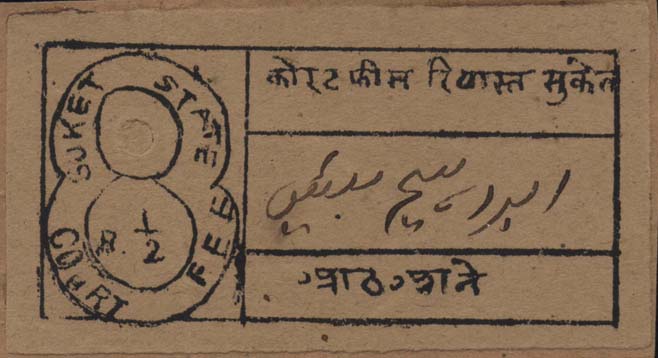 SUKET STATE
COURT FEE
R. 1/2
कोर्ट फीस रियास्त सुकेत
आठ आने